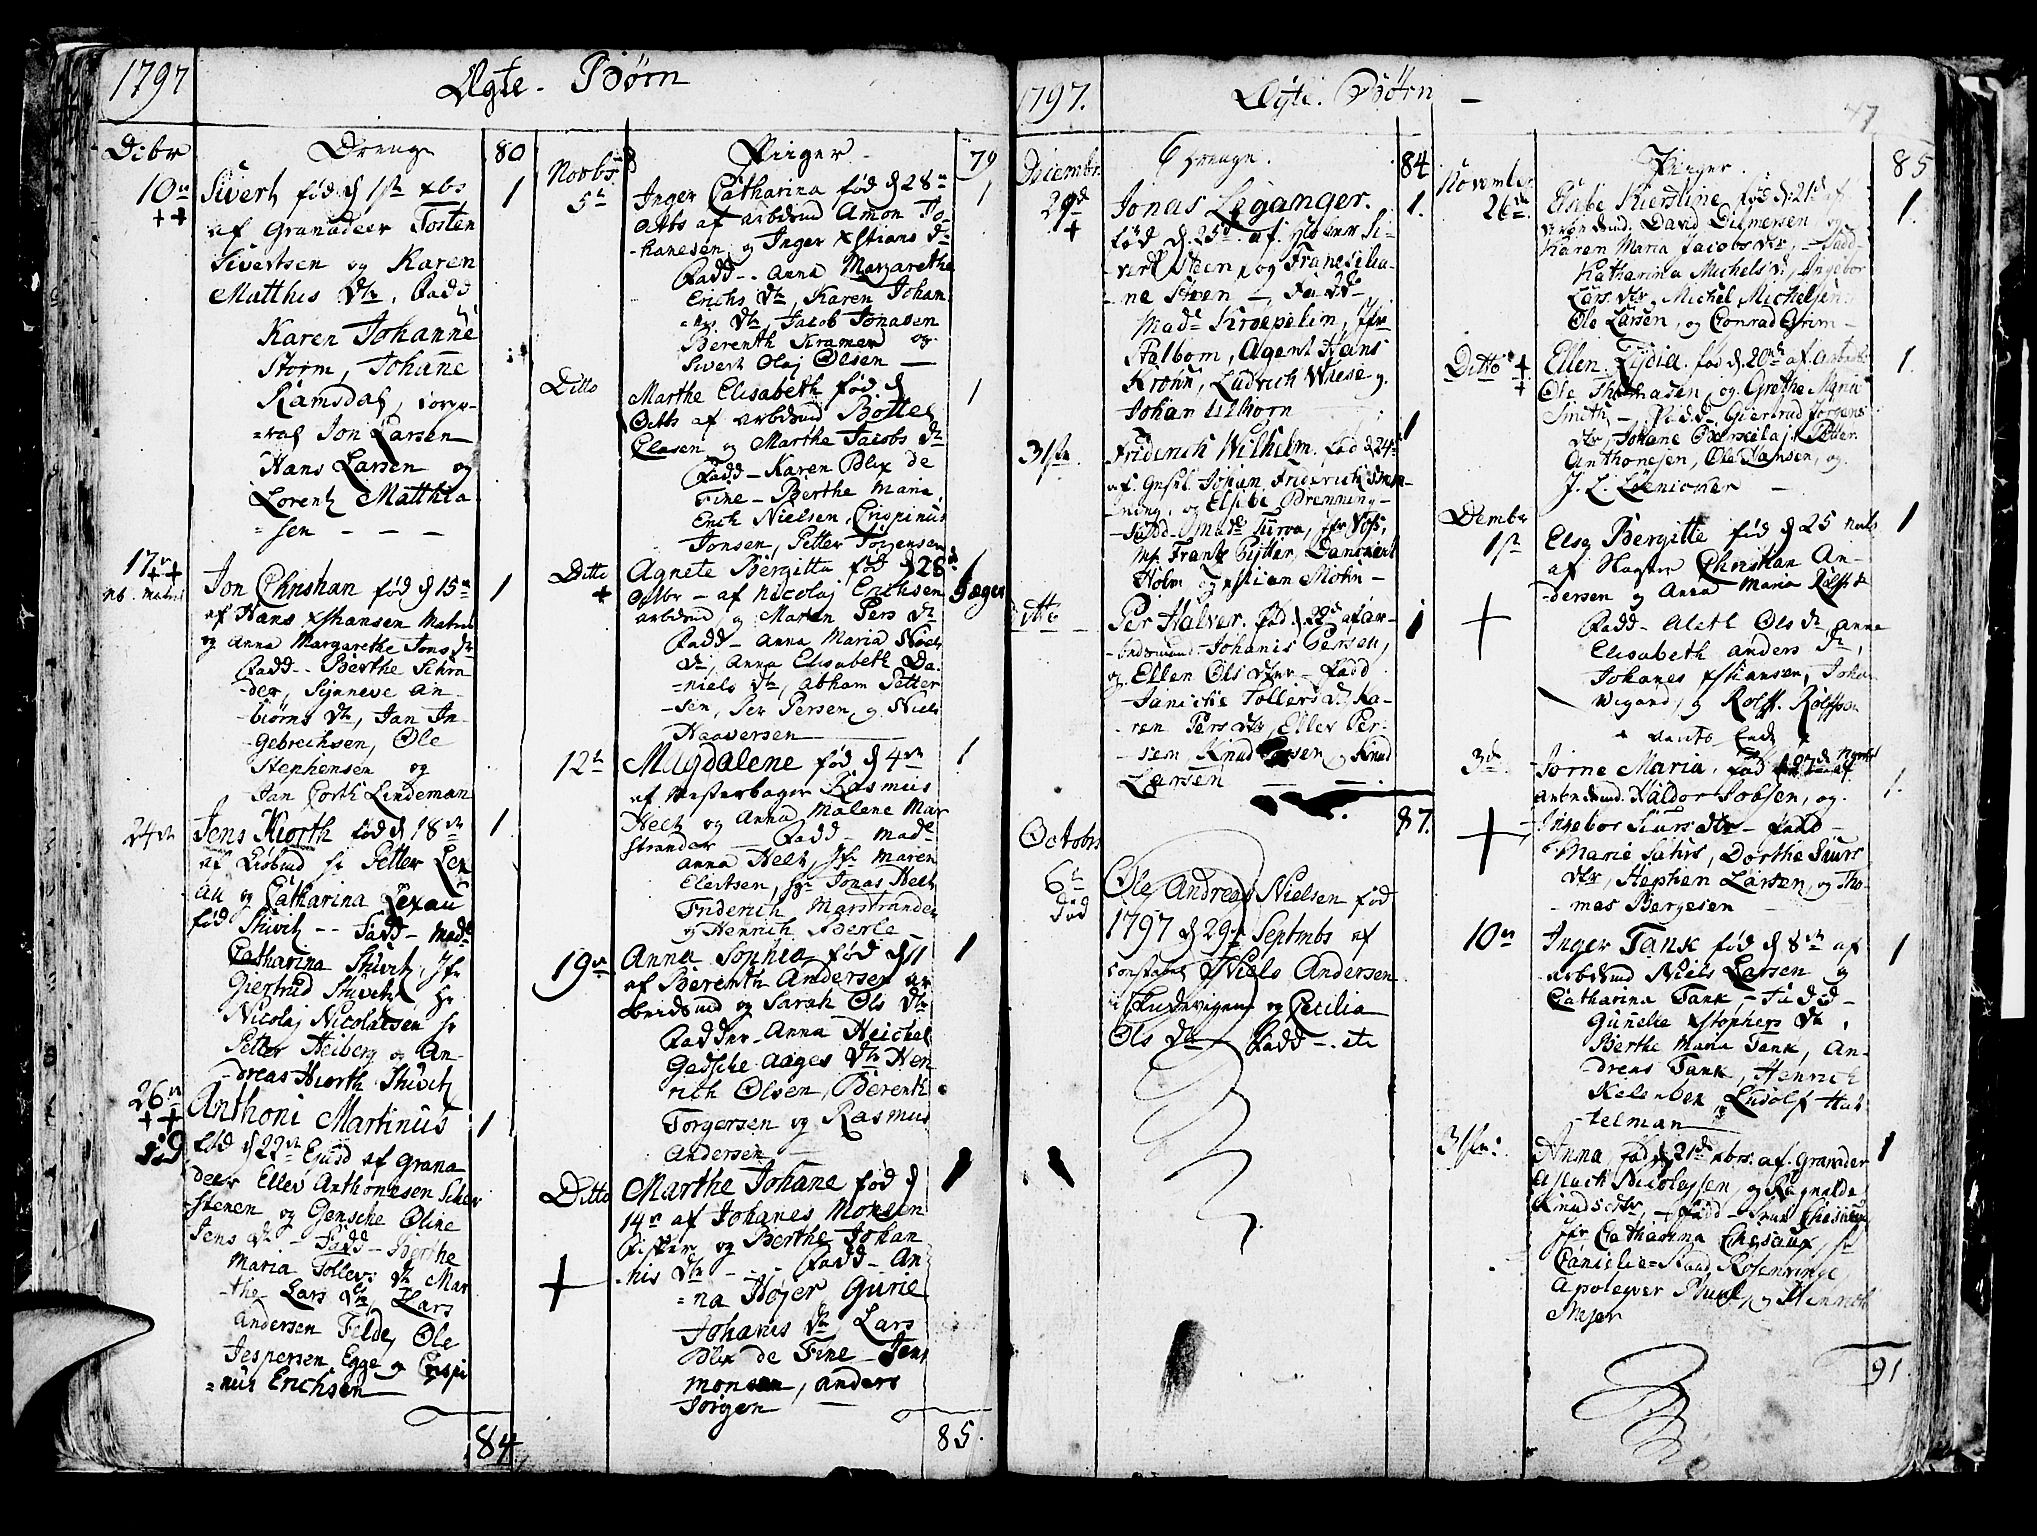 1797
Ægte. Børn
Debr
Drenge
80
10de
++
Sivert fød d 1ste xbs 1
af Granadeer Tosten
Sivertsen og Karen
Matthis Dtr. Fadd
Karen Johanne
Storm, Johanne
Ramsdal, corpo-
=ral Jon Larsen
Hans Larsen og
Lorentz Matthia
=sen - - -
17de
++
Jon Christian fød d 15de 1
af Hans xstiansen Matros
og Anna Margarethe Jons Dtr
Fadd - Berthe Schrø
-der, Synneve An-
-biørns Dtr, Jan In-
-gebrechsen, Ole
Stephensen og
Jan Corth Lindeman
24de
Jens Kiorth fød d 18de 1
Petter Lex
au og Catharina Lexau
fød Stivitz -- Fadd - Made
Catharina Stivitz, Jfr
Giertrud Stivitz Hr
Nicolaj Nicolaisen Hr
Petter Heiberg og An-
-dreas Hiorth Stivitz
26de
++
død
Anthoni Martinus 1
fød d 22de Ejusd af Grana
deer Ellev Anthonesen
-stenen og Gensche Oline
Jens Dtr - Fadd - Berthe
Maria Tollevs Dtr Mar
-the Lars Dtr, Lars
Andersen Felde, Ole
Jespersen Egge og Crispi
=nus Erichsen
84
Novbs
Piiger
79
5te
Inger Catharina fød d 28de 1
Octbs af arbdsmd Amon Jo-
-hanesen og Inger xstians Dtr
Fadd - Anna Margarethe
Erichs Dtr, Karen Johan
-nes Dtr, Jacob Jonasen
Berenth Kramer og
Sivert Olaj Olsen
Ditto
Marthe Elisabeth fød d 1
Octbs af arbdsmd Bottel
Clasen og Marthe Jacobs Dtr
Fadd - Karen Blix de
Fine - Berthe Maria,
Erich Nielsen, Crispinus
Jonsen, Petter Torgersen
Ditto
+
Agnete Bergitta fød d 28de 1
Octbr - af Nicolaj Erichsen Jæger
arbdsmd og Marten Pers Dtr
Fadd - Anna Maria Niels
Dtr, Anna Elisabeth Da-
=niels Dtr, Abham Petter
-sen, Per Persen, og Niels
Haaversen
12te
Magdalene fød d 4de 1
af Mesterbager Rasmus
Helt og Anna Malene Mar
strander - Fadd - Made
Anna Helt, Jfr Maren
Elertsen, Hr Jonas Helt
Friderich Marstrander
og Henrich Aberle
19de
Anna Sophia fød d 11 1
af Berenth Andersen ar
-beidsmd og Sarah Ols Dtr
Fadder - Anna Heichel
Gedsche Aages Dtr Hen
rich Olsen, Berenth
Torgersen og Rasmus
Andersen
Ditto
+
Marthe Johane fød d 1
14de af Johanes Monsen
Fisker og Berthe Johan
-nis Dtr - - - Fadd - An
=na Højer, Gurie
Johanis Dtr, Lars
Blix de Fine - Jens
Monsen, Anders
Jørgen
85.
1797.
Ægte. Børn
47
Decembr
Drenge.
84
29de
+
Jonas Leganger. 1.
fød d. 25de af Si-
-vert Steen, og Francilia-
-ne Steen -, Fadd
Made Kroepelin, Jfr
Stalbom, Agent Hans
Krohn, Ludrich Wiese og
Johan Ulhorn
31te
Friderich Wilhelm. fød d 24de 1
af Johan Friderich
-ning, og Elsebe Brenning-
-Fadd - Made Jfr
Mr Frantz Danckert
Holm og Stian Mohn -
Ditto
Per Halver. fød d 22de af ar- 1
-beidsmand Johanis Persen,
og Ellen Ols Dtr - Fadd
Janicke Tollers Dtr Ka-
-ren Pers Dtr, Ellev Per-
sen Knud Persen og Knud
Larsen
87.
Octobr
6te
død
Ole Andreas Nielsen fød
1797 d 29de Septmbs af
constabel Niels Andersen
i Skudevigen og Cecilia
Ols Dtr Fadd - etc
November
Piiger.
85
26de
Elsebe Kierstine fød d: 21de af 1.
David Ditmersen, og
Karen Maria Jacobs Dtr, - Fadd -
Katharina Michels Dtr, Ingebor
Lars Dtr, Michel Michelsen
Ole Larsen, og Conrad Grim -
Ditto ++
Ellen Lydia. fød d. 20de af arbeids 1.
Ole Thomasen, og Grethe Maria
Smith - Fadd. Giertrud Jørgens
Dtr, Johane Petter
Anthonesen, Ole Hansen, og
Dembr
1ste
+
Elsa Bergitte fød d 25 Novbs 1
af Slagter Christian An-
-dersen og Anna Maria Rolfs Dtr
Fadd - Aleth Ols Dtr Anna
Elisabeth Anders Dtr,
Johanes xstiansen, Joha-
Wigand, og Rolf Rolfsen
3de
+
Jorne Maria. fød d 27de 1.
Haldor Jobsen, og
Ingebor Siurs Dtr - Fadd -
Marie Siurs, Dorthe Siurs
Dtr, Stephen Larsen, og Tho-
-mas Børgesen
10de
Inger Tank fød d 8de af 1
arbdsmd Niels Larsen og
Catharina Tank - Fadd -
Gunelie xstophers Dtr,
Berthe Maria Tank, An-
dreas Tank, Henrich
Ludolf Hut-
-telman
31te:
Anna fød d 21de xbrs. af. Granader 1
Aslach Nicolaysen, og Ragnilde
Knuds Dtr, - Fadd
Jfr Catharina Chesaux,
Rosenvinge,
og Henrich
Mejer
91